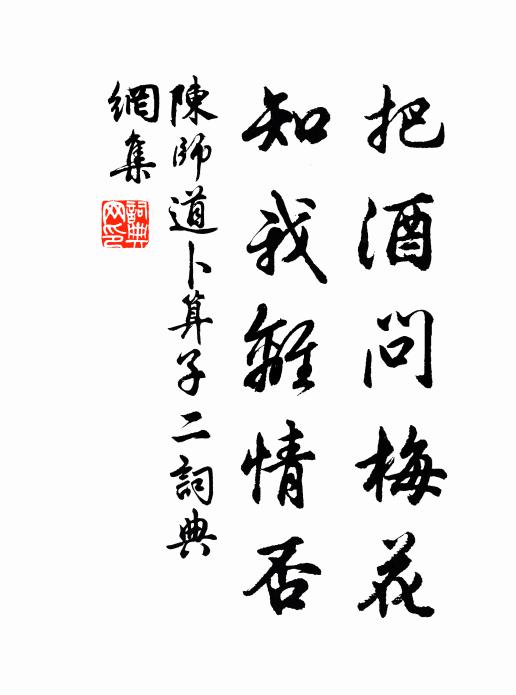 把酒問梅花
知我離情否
陳師道卜算子二詞典
網集
詞典網印